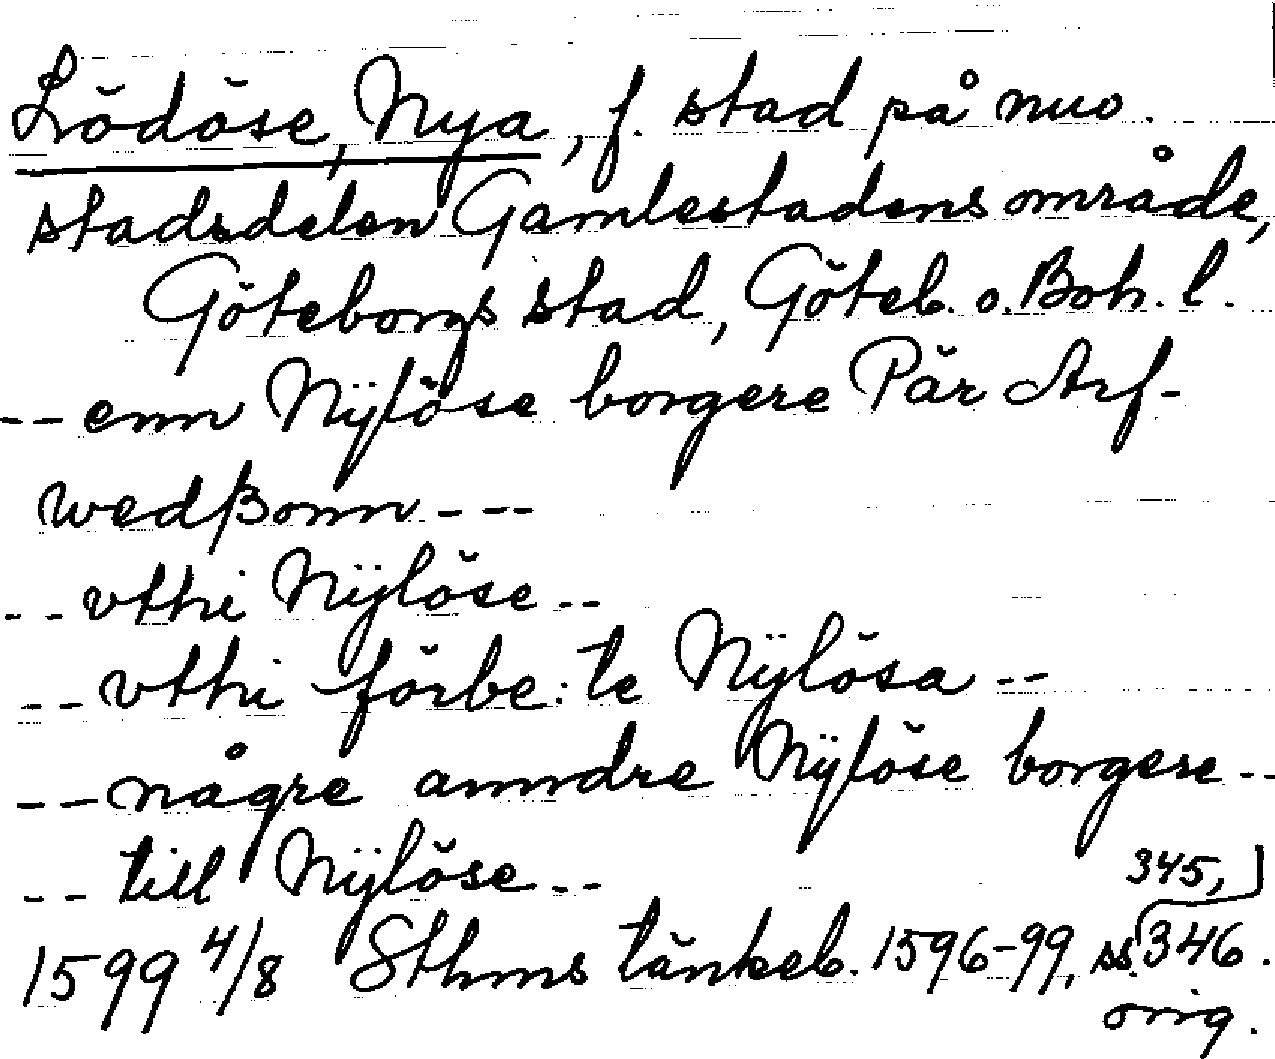 Lödöse, Nya, f. stad på nuv.
stadsdelen Gamlestadens område,
Göteborgs stad, Göteb. o. Boh. l.
-- enn Nÿlöse borgere Pär Arf-
wedßonn ---
-- vthi Nÿlöse --
-- vthi förbe:te Nÿlösa --
-- någre anndre Nÿlöse borgere --
-- till Nÿlöse --
345,
1599 4/8 Sthms tänkeb. 1596-99, ss. 346.
orig.